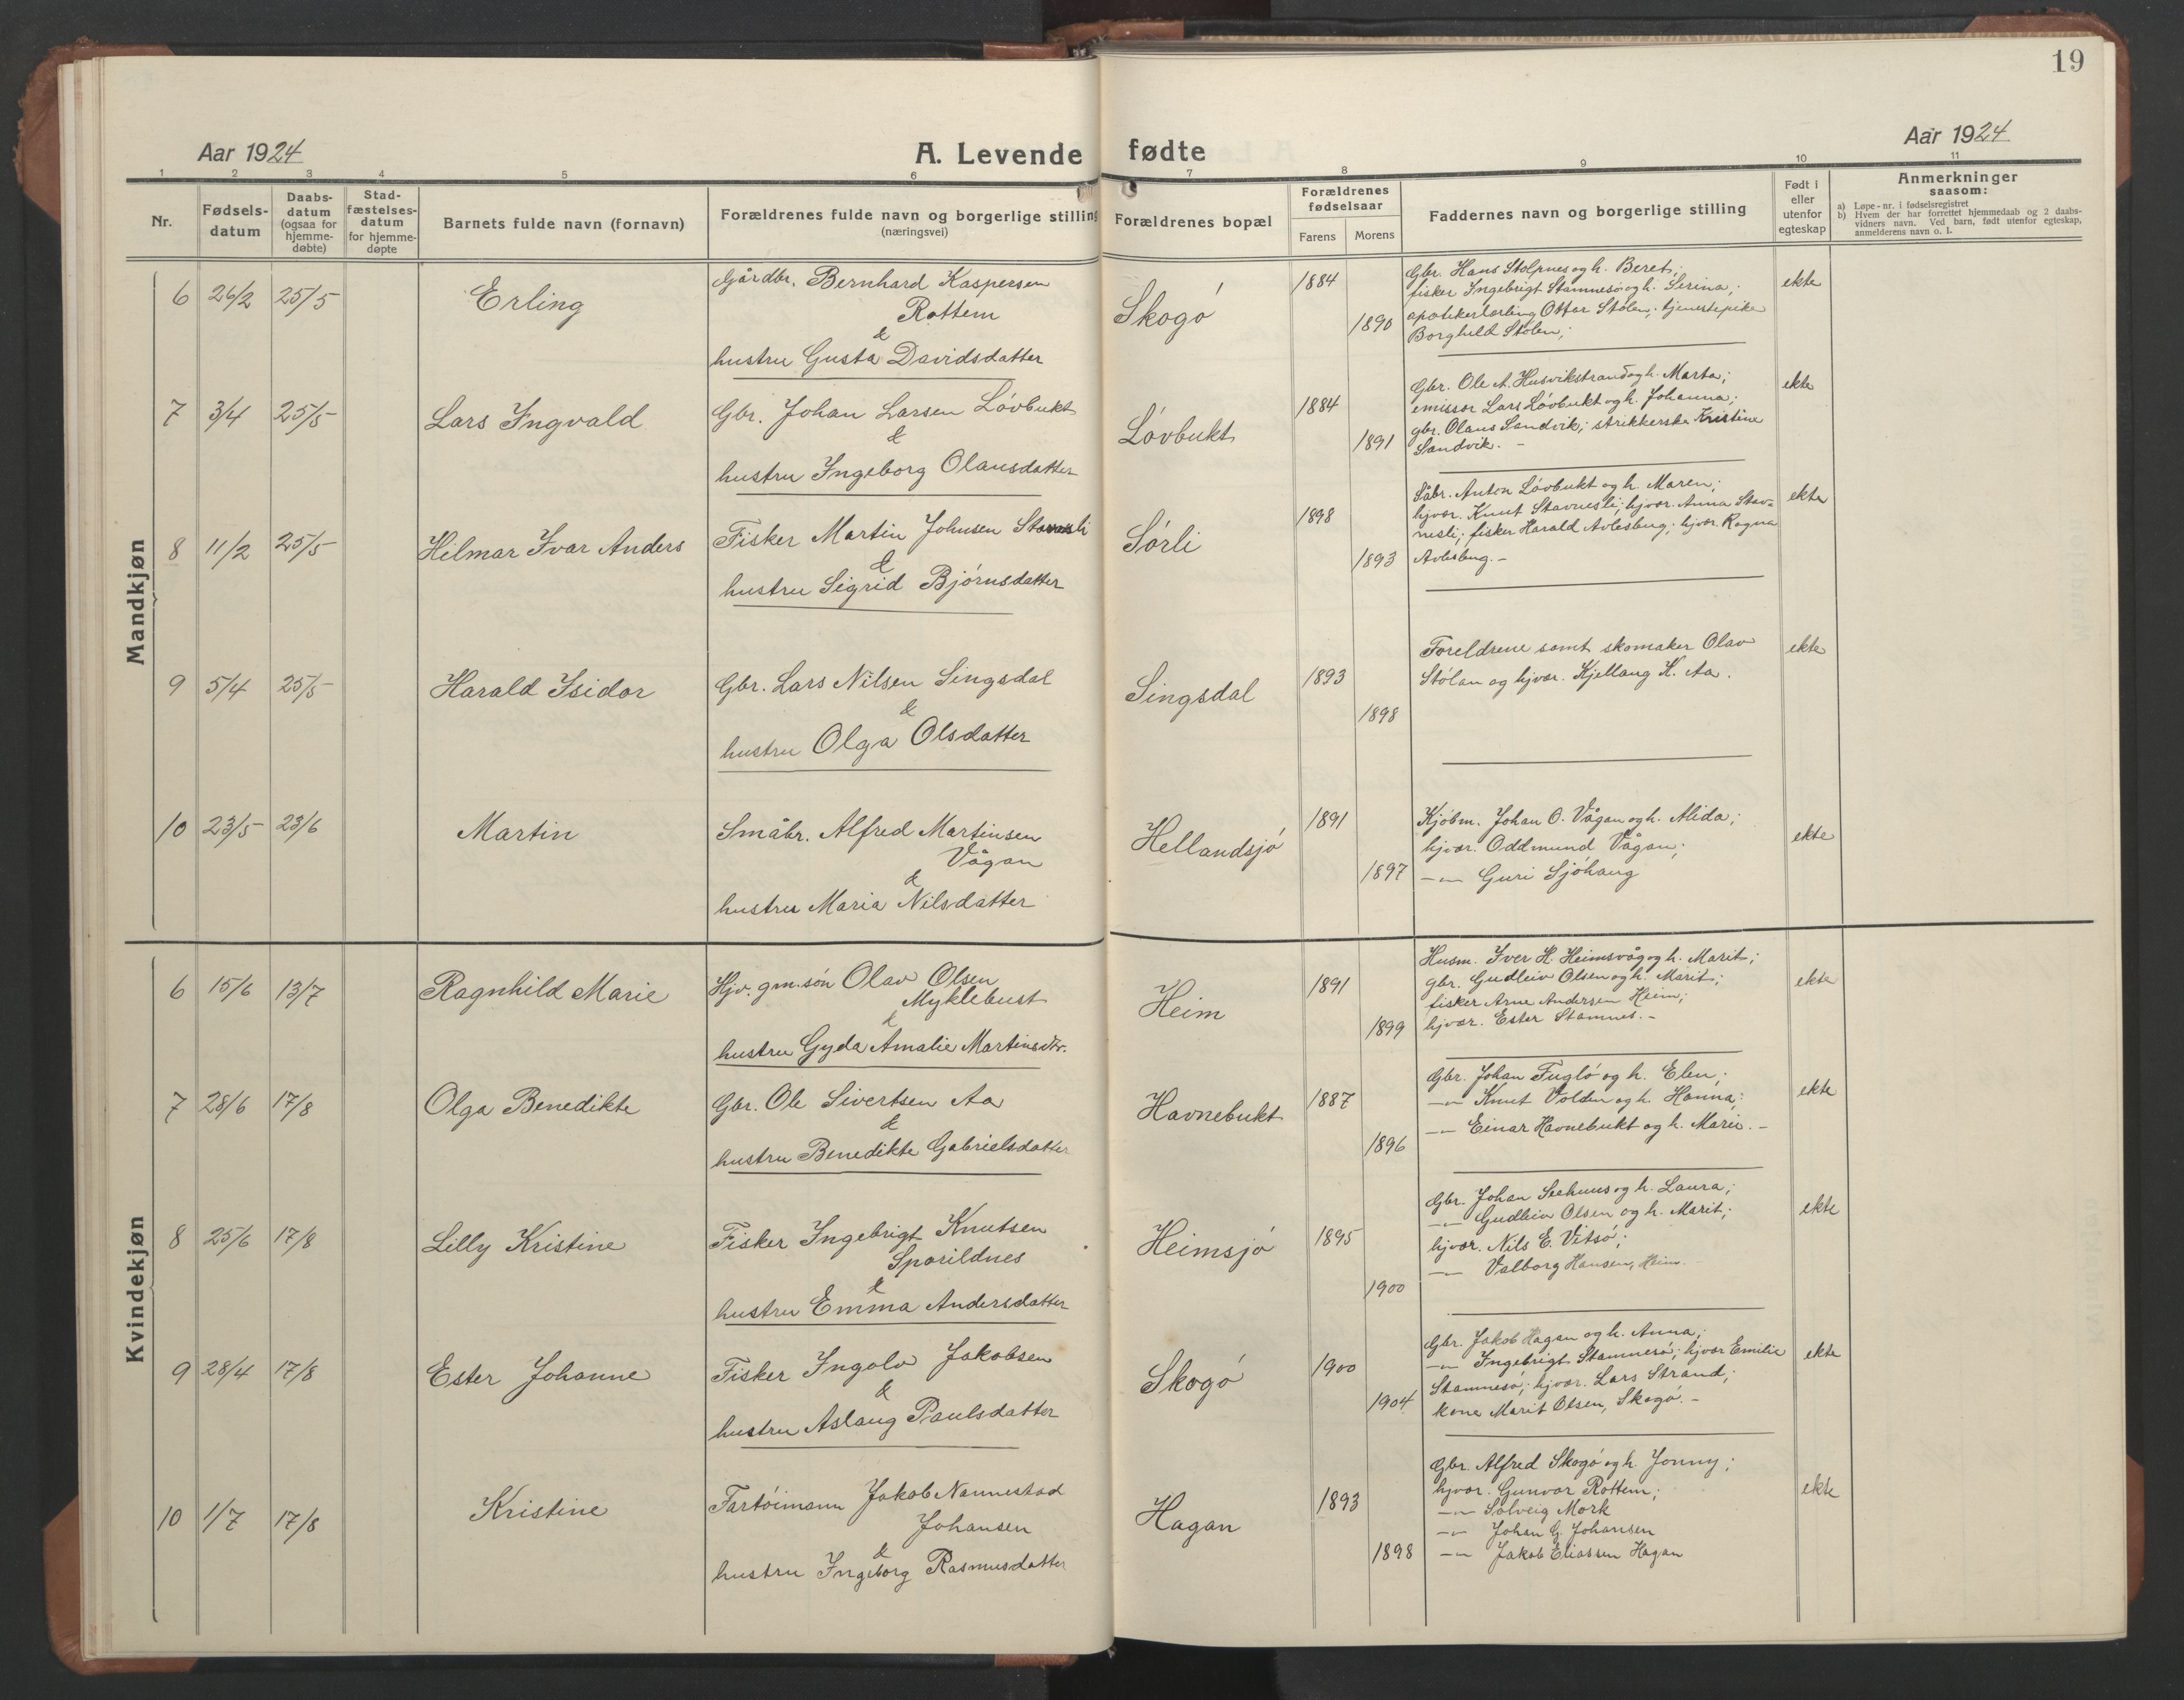 19
Aar 1924
A. Levende fødte
Aar 1924
1 2 3 4 5 6 7 8 9 10 11
Nr.
Fødsels-
datum
Daabs-
datum
(ogsaa for
hjemme-
døbte)
Stad-
fæstelses-
datum
for hjemme-
døpte
Barnets fulde navn (fornavn)
Forældrenes fulde navn og borgerlige stilling
(næringsvei)
Forældrenes bopæl
Forældrenes
fødselsaar
Farens Morens
Faddernes navn og borgerlige stilling
Født i
eller
utenfor
egteskap
Anmerkninger
saasom:
a) Løpe-nr. i fødselsregistret
b) Hvem der har forrettet hjemmedaab og 2 daabs-
vidners navn. Ved barn, født utenfor egteskap,
anmelderens navn o. l.
Mandkjøn
6 26/2 25/5 Erling
Gårdbr. Bernhard Kaspersen
Rottem
&
hustru Gusta Davidsdatter
Skogö 1884 1890
Gbr. Hans Stolpnes og h. Beret;
fisker Ingebrigt Stamnesö og h. Serina;
apotekerlærling Ottar Stölen; tjenestepike
Borghild Stölen;
ekte
7 3/4 25/5 Lars Ingvald
Gbr. Johan Larsen Lövbukt
&
hustru Ingeborg Olausdatter
Lövbukt 1884 1891
Gbr. Ole A. Husvikstrand og h. Marta;
emissær Lars Lövbukt og h. Johanna;
gbr. Olaus Sandvik; strikkerske Kristine
Sandvik. -
ekte
8 11/2 25/5 Hilmar Ivar Anders
Fisker Martin Johnsen
&
hustru Sigrid Björnsdatter
Sörli 1898 1893
Anton Lövbukt og h. Maren;
hjvær. Knut Stavnesli; hjvær. Anna Stav-
nesli; fisker Harald Avlesbug; hjvær. Ragna
Avlesbug. -
ekte
9 5/4 25/5 Harald Isidor
Gbr. Lars Nilsen Singsdal
&
hustru Olga Olsdatter
Singsdal 1893 1898
Foreldrene samt skomaker Olav
Stölan og hjvær. Kjellaug K. Aa.
ekte
10 23/5 23/6 Martin
Småbr. Alfred Martinsen
Vågan
&
hustru Maria Nilsdatter
Hellandsjö 1891 1897
Kjöbm. Johan O. Vågan og h. Alida;
hjvær. Oddmund Vågan;
-"- Guri Sjöhaug
ekte
Kvindekjøn
6 15/6 13/7 Ragnhild Marie
Hjv. gm.sön Olav Olsen
Myklebust
&
hustru Gyda Amalie Martinsdtr.
Heim 1891 1899
Husm. Iver H. Heimsvåg og h. Marit;
gbr. Gudleiv Olsen og h. Marit;
fisker Arne Andersen Heim;
hjvær. Ester Stamnes. -
ekte
7 28/6 17/8 Olga Benedikte
Gbr. Ole Sivertsen Aa
&
hustru Benedikte Gabrielsdatter
Havnebukt 1887 1896
Gbr. Johan Fuglö og h. Elen;
-"- Knut Volden og h. Hanna;
-"- Einar Havnebukt og h. Marie. -
ekte
8 25/6 17/8 Lilly Kristine
Fisker Ingebrigt Knutsen
Sporildnes
&
hustru Emma Andersdatter
Heimsjö 1895 1900
Gbr. Johan Seehuus og h. Laura;
-"- Gudleiv Olsen og h. Marit;
hjvær. Nils E. Vitsö;
-"- Valborg Hansen, Heim.
ekte
9 28/4 17/8 Ester Johanne
Fisker Ingolv Jakobsen
&
hustru Aslaug Paulsdatter
Skogö 1900 1904
Gbr. Jakob Hagan og h. Anna;
-"- Ingebrigt Stamnesö; hjvær Emilie
Stamnesö; hjvær. Lars Strand;
kone Marit Olsen, Skogö. -
ekte
10 1/7 17/8 Kristine
Fartöimann Jakob Nannestad
Johansen
&
hustru Ingeborg Rasmusdatter
Hagan 1893 1898
Gbr. Alfred Skogö og h. Jonny;
hjvær. Gunvor Rottem;
-"- Solveig Mork
-"- Johan G. Johansen
-"- Jakob Eliassen Hagan
ekte